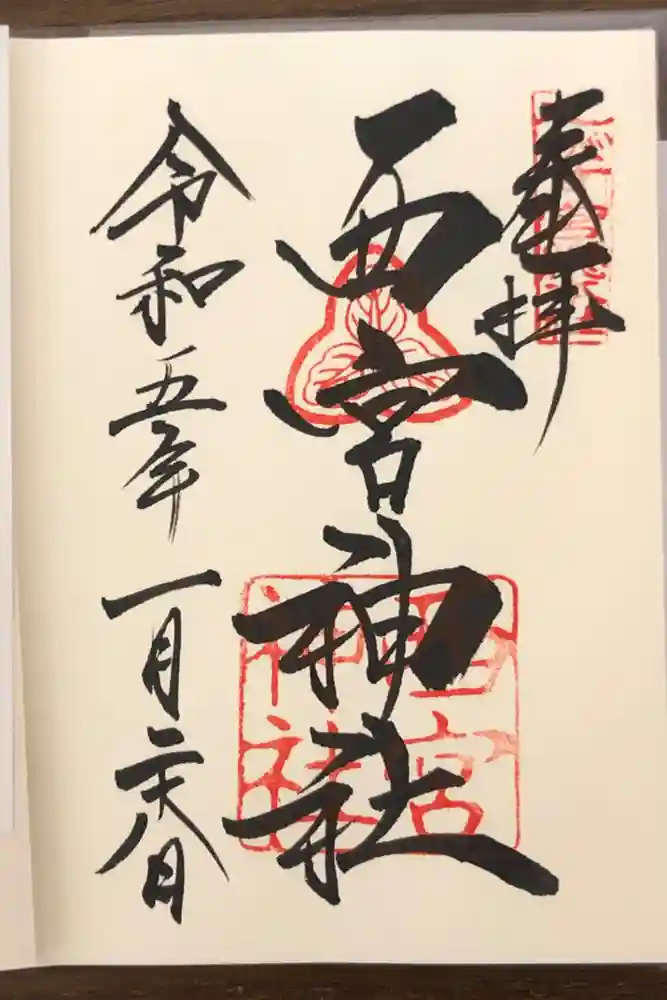 奉拝
西宮神社
西宮
神社
令和五年 一月二十八日